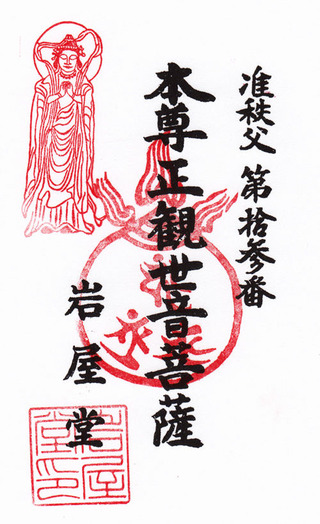 准秩父 第拾参番
本尊正観世音菩薩
岩屋堂
岩屋堂印